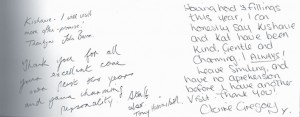 Kishanie - I will visit
more often - promise!
Thankyou John
Thank you for all
your excellent care
over past two years
and your charming
personality
Having had 3 fillings
this year, I can
honestly say Kishanie
and Kat have been
Kind, Gentle and
Charming. I ALWAYS!
leave smiling, and
have no apprehension
before I have another
visit. Thank you!
Claire Gregory x